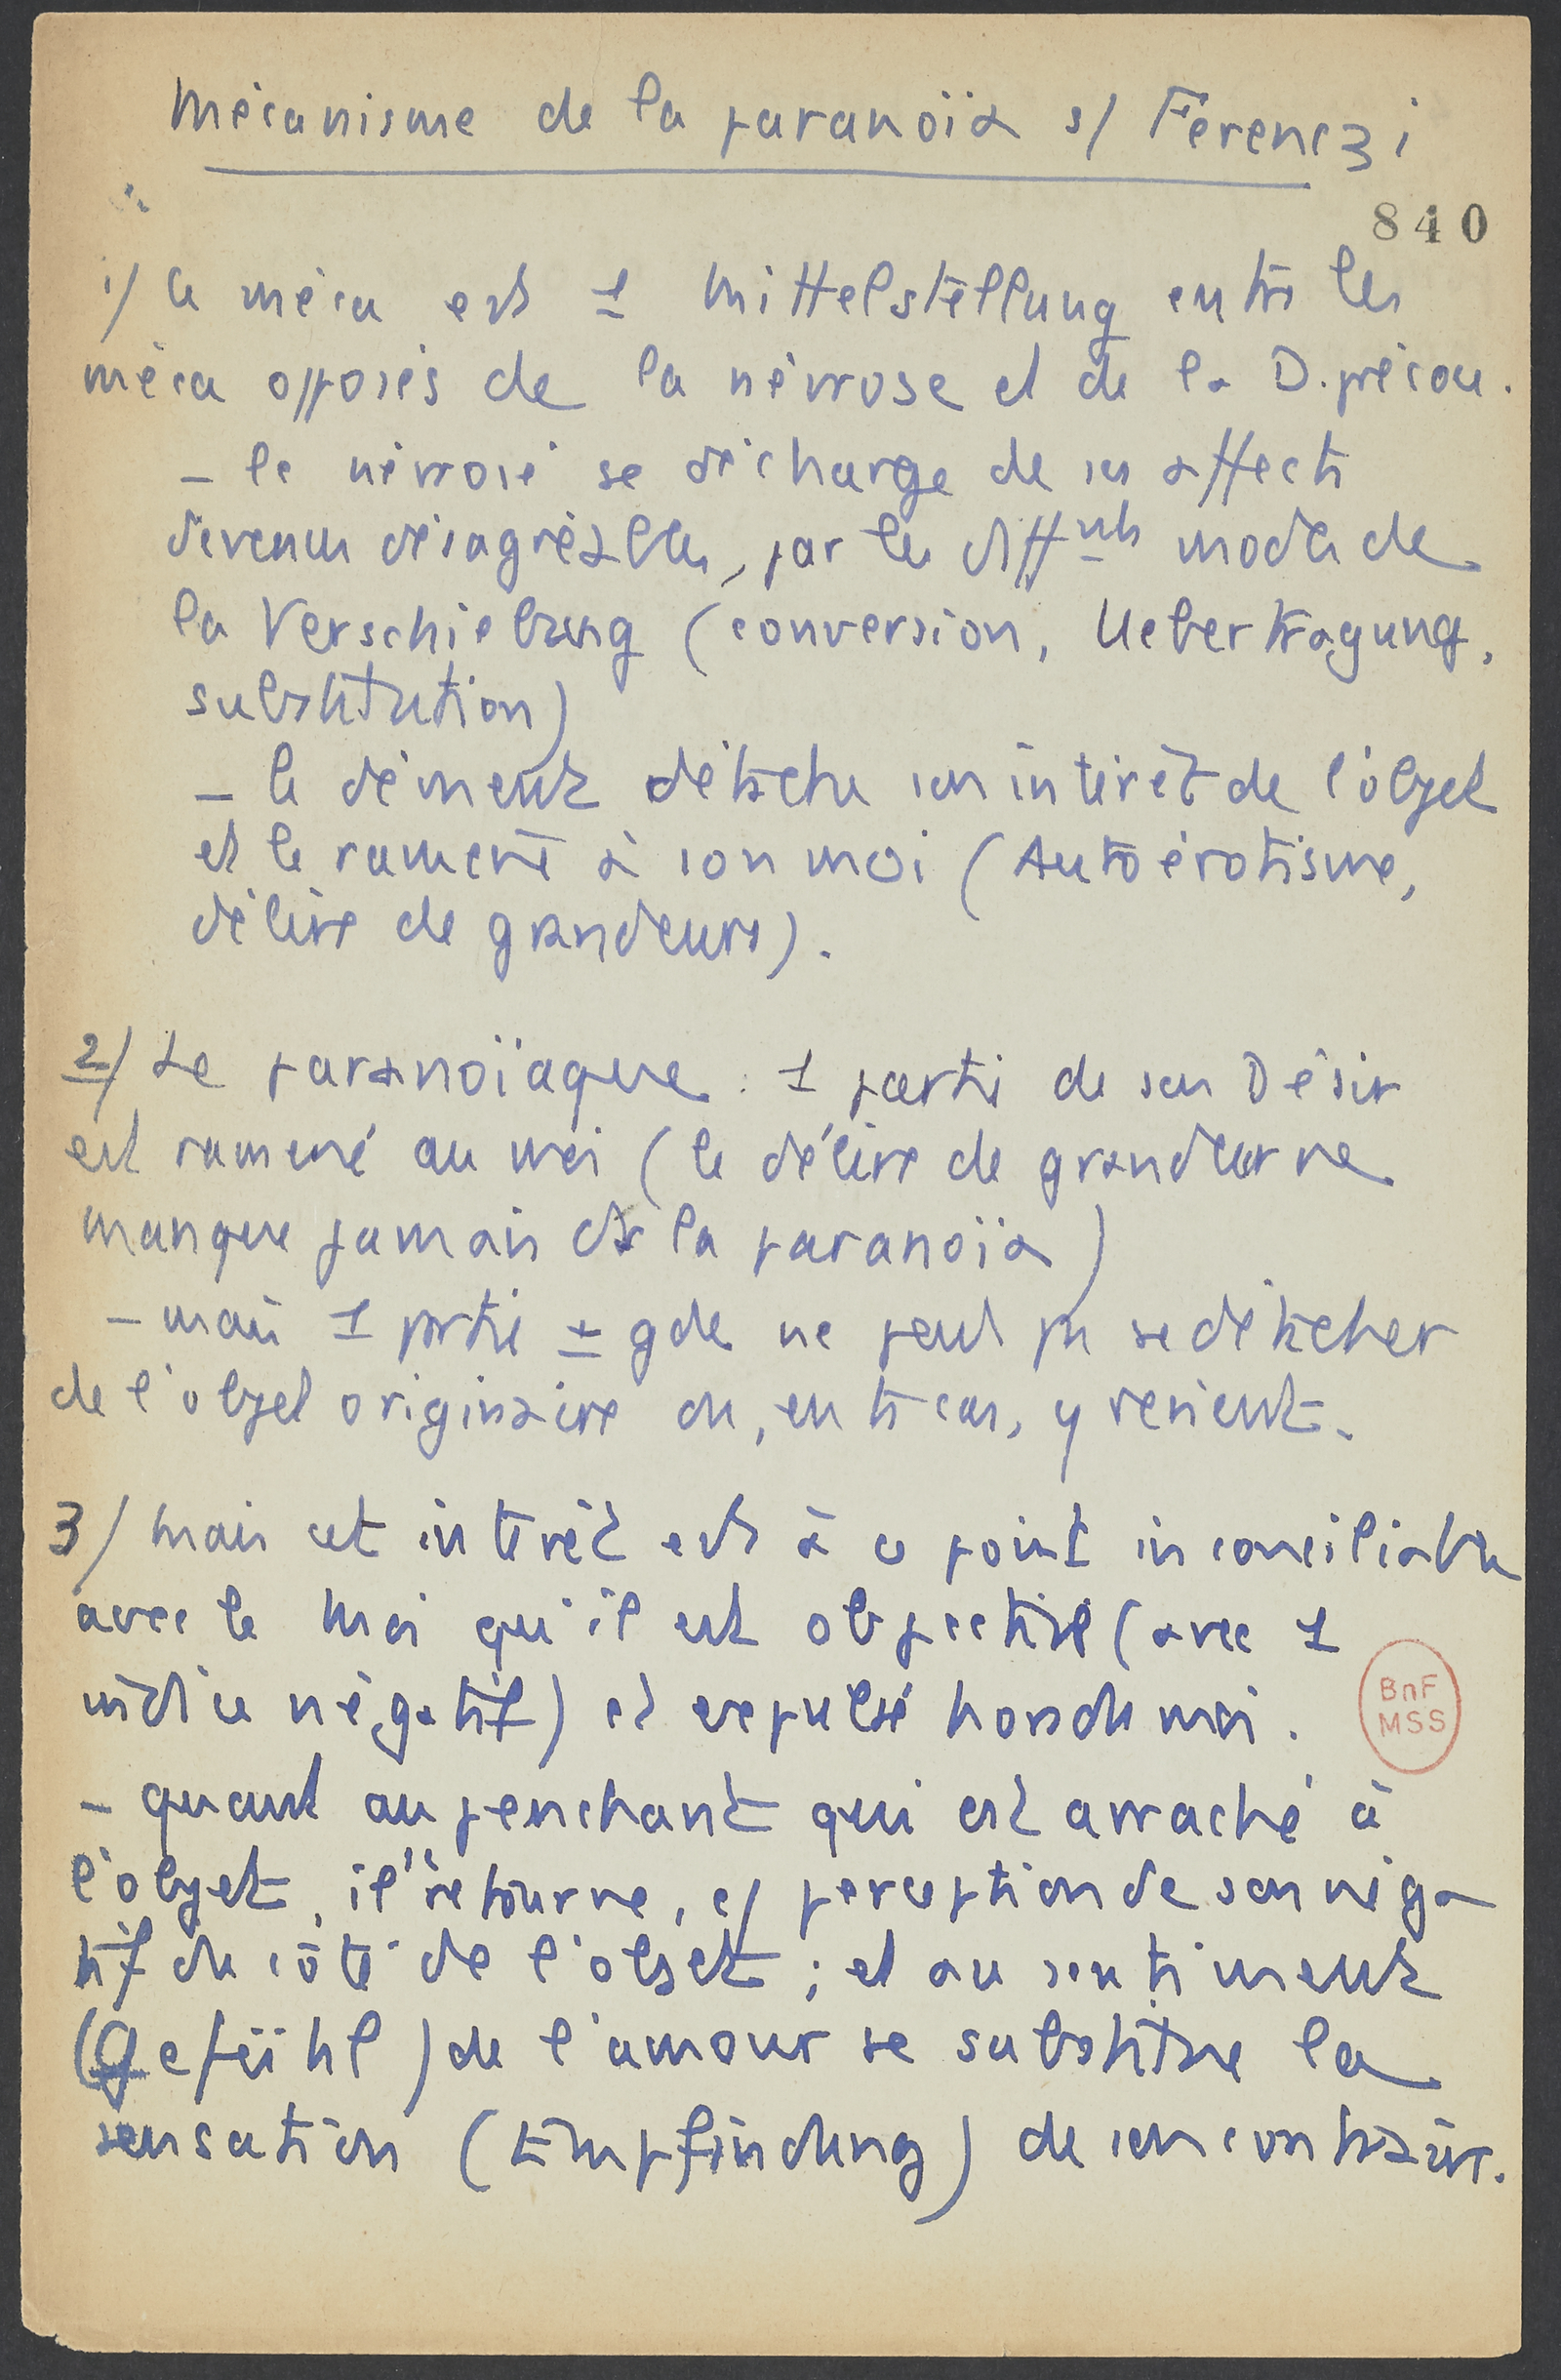 Mécanisme de la paranoïa s/ Ferenczi
840
1/ Ce méca est 1 Mittelstellung entre les
méca opposés de la névrose et de la D. précoce.
– le névrosé se décharge de ses affects
devenus désagréables, par les diffnts modes de
la Verschiebung (conversion, Uebertragung,
substitution)
– le dément détache son intérêt de l'objet
et le ramène à son moi (Autoérotisme,
délire de grandeurs).
2/ Le paranoïaque : 1 partie de son Désir
est ramené au moi (le délire de grandeur ne
manque jamais ds la paranoïa)
– mais 1 partie ± gde ne peut pas se détacher
de l'objet originaire ou, en ts cas, y revient.
3/ Mais cet intérêt est à ce point inconciliable
avec le Moi qu'il est objectivé (avec 1
indice négatif) et expulsé hors du moi.
BnF
MSS
– quant au penchant qui est arraché à
l'objet, il "retourne, c/ perception de son néga
tif du côté de l'objet ; et au sentiment
(Gefühl) de l'amour se substitue la
sensation (Empfindung) de son contraire.